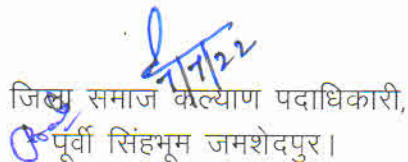 7/7/22
जिला समाज कल्याण पदाधिकारी,
पूर्वी सिंहभूम जमशेदपुर।